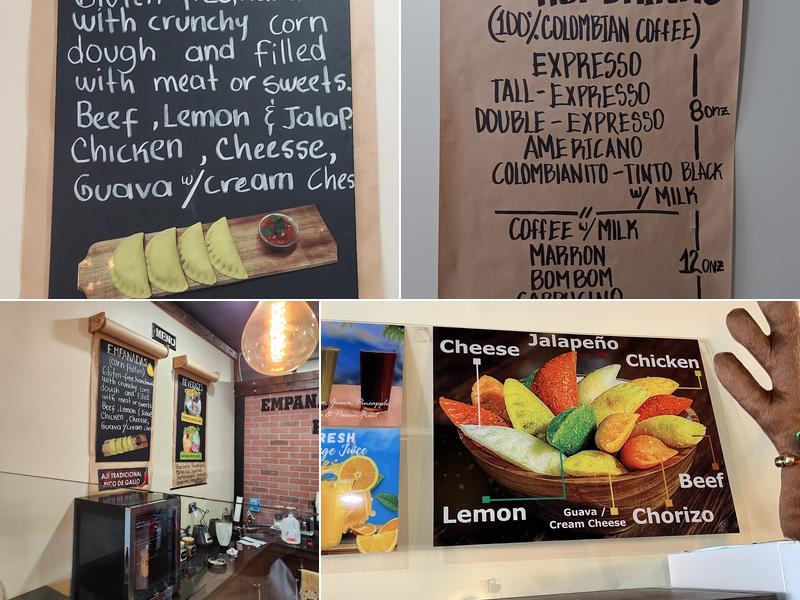 with crunchy corn
dough and filled
with meat or sweets.
Beef, Lemon & Jalap.
Chicken, Cheesse,
Guava w/cream Ches
(100% COLOMBIAN COFFEE)
EXPRESSO
TALL-EXPRESSO
DOUBLE-EXPRESSO
AMERICANO
COLOMBIANITO-TINTO BLACK
W/ MILK
8onz
COFFEE W/ MILK
MARRON
BOMBOM
12onz
MENU
EMPANADAS
(corn Patties)
Gluten-free, handmade
with crunchy corn
dough and filled
with meat or sweets.
Beef, Lemon & Jalap
Chicken, Cheesse,
Guava w/cream Ches
AJÍ TRADICIONAL
PICO DE GALLO
BEVERAGES
EMPAN
, Guava, Pineapple,
& Passion Fruit
FRESH
ge Juice
Cheese
Jalapeño
Chicken
Beef
Lemon
Guava /
Cream Cheese
Chorizo